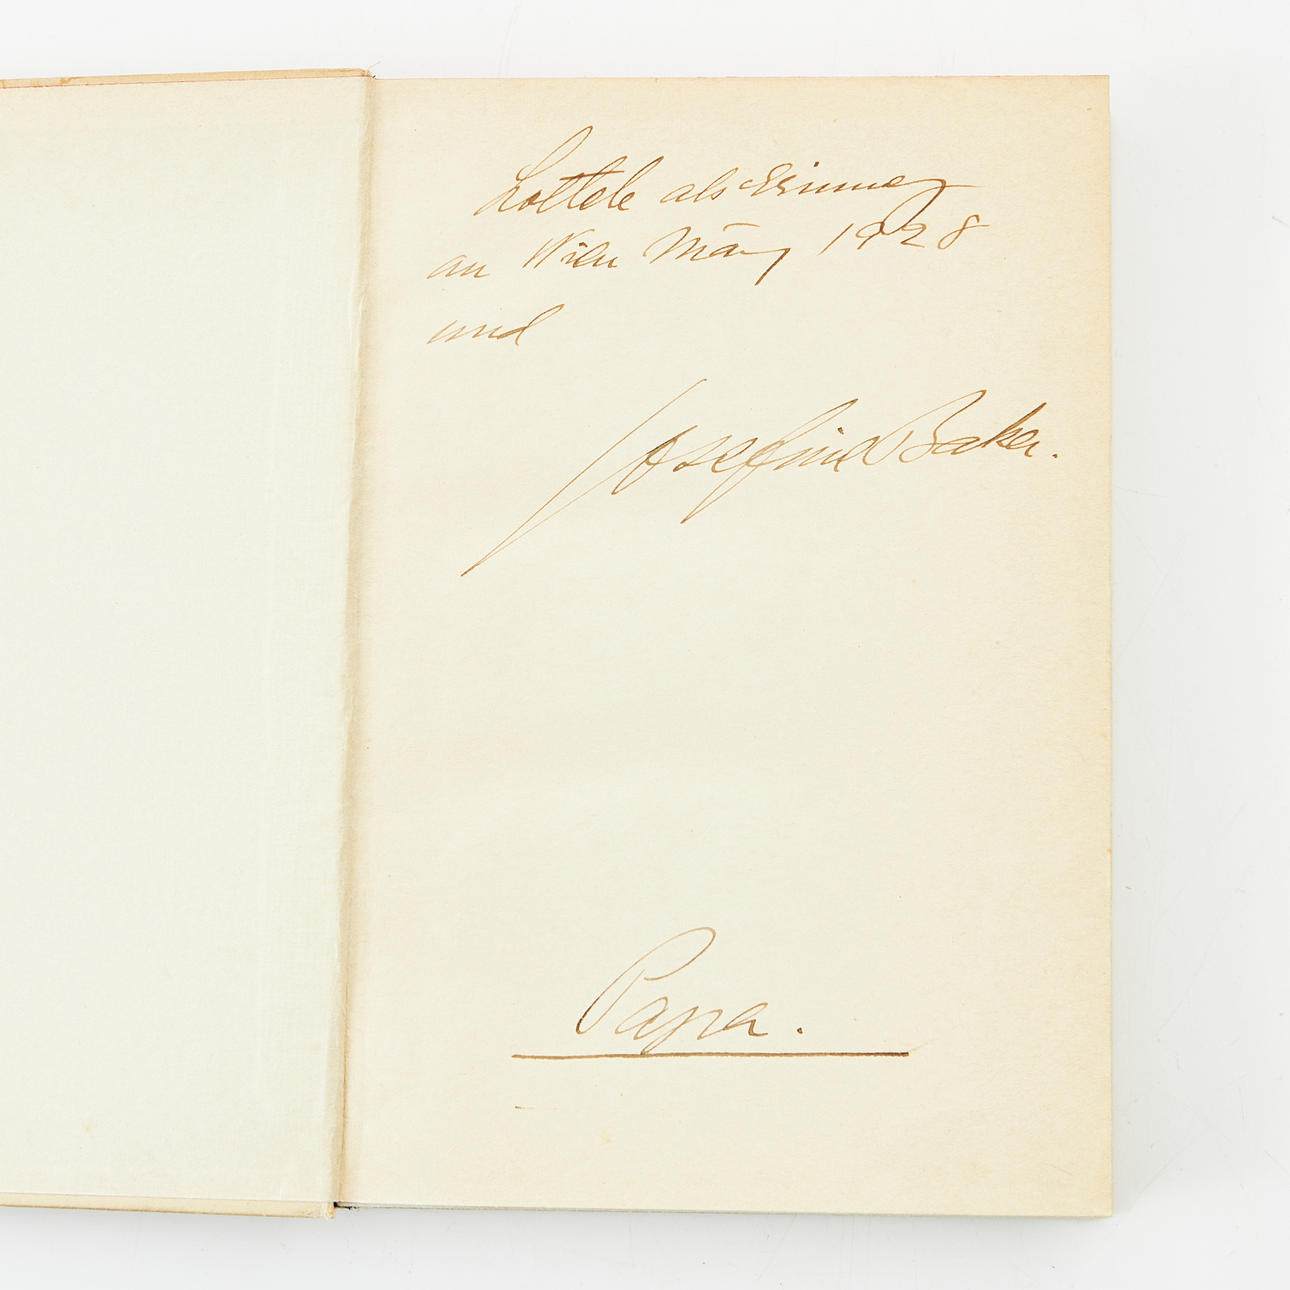 Lottele als Erinnerg
an Wien März 1928
und
Josefine Baker.
Papa.